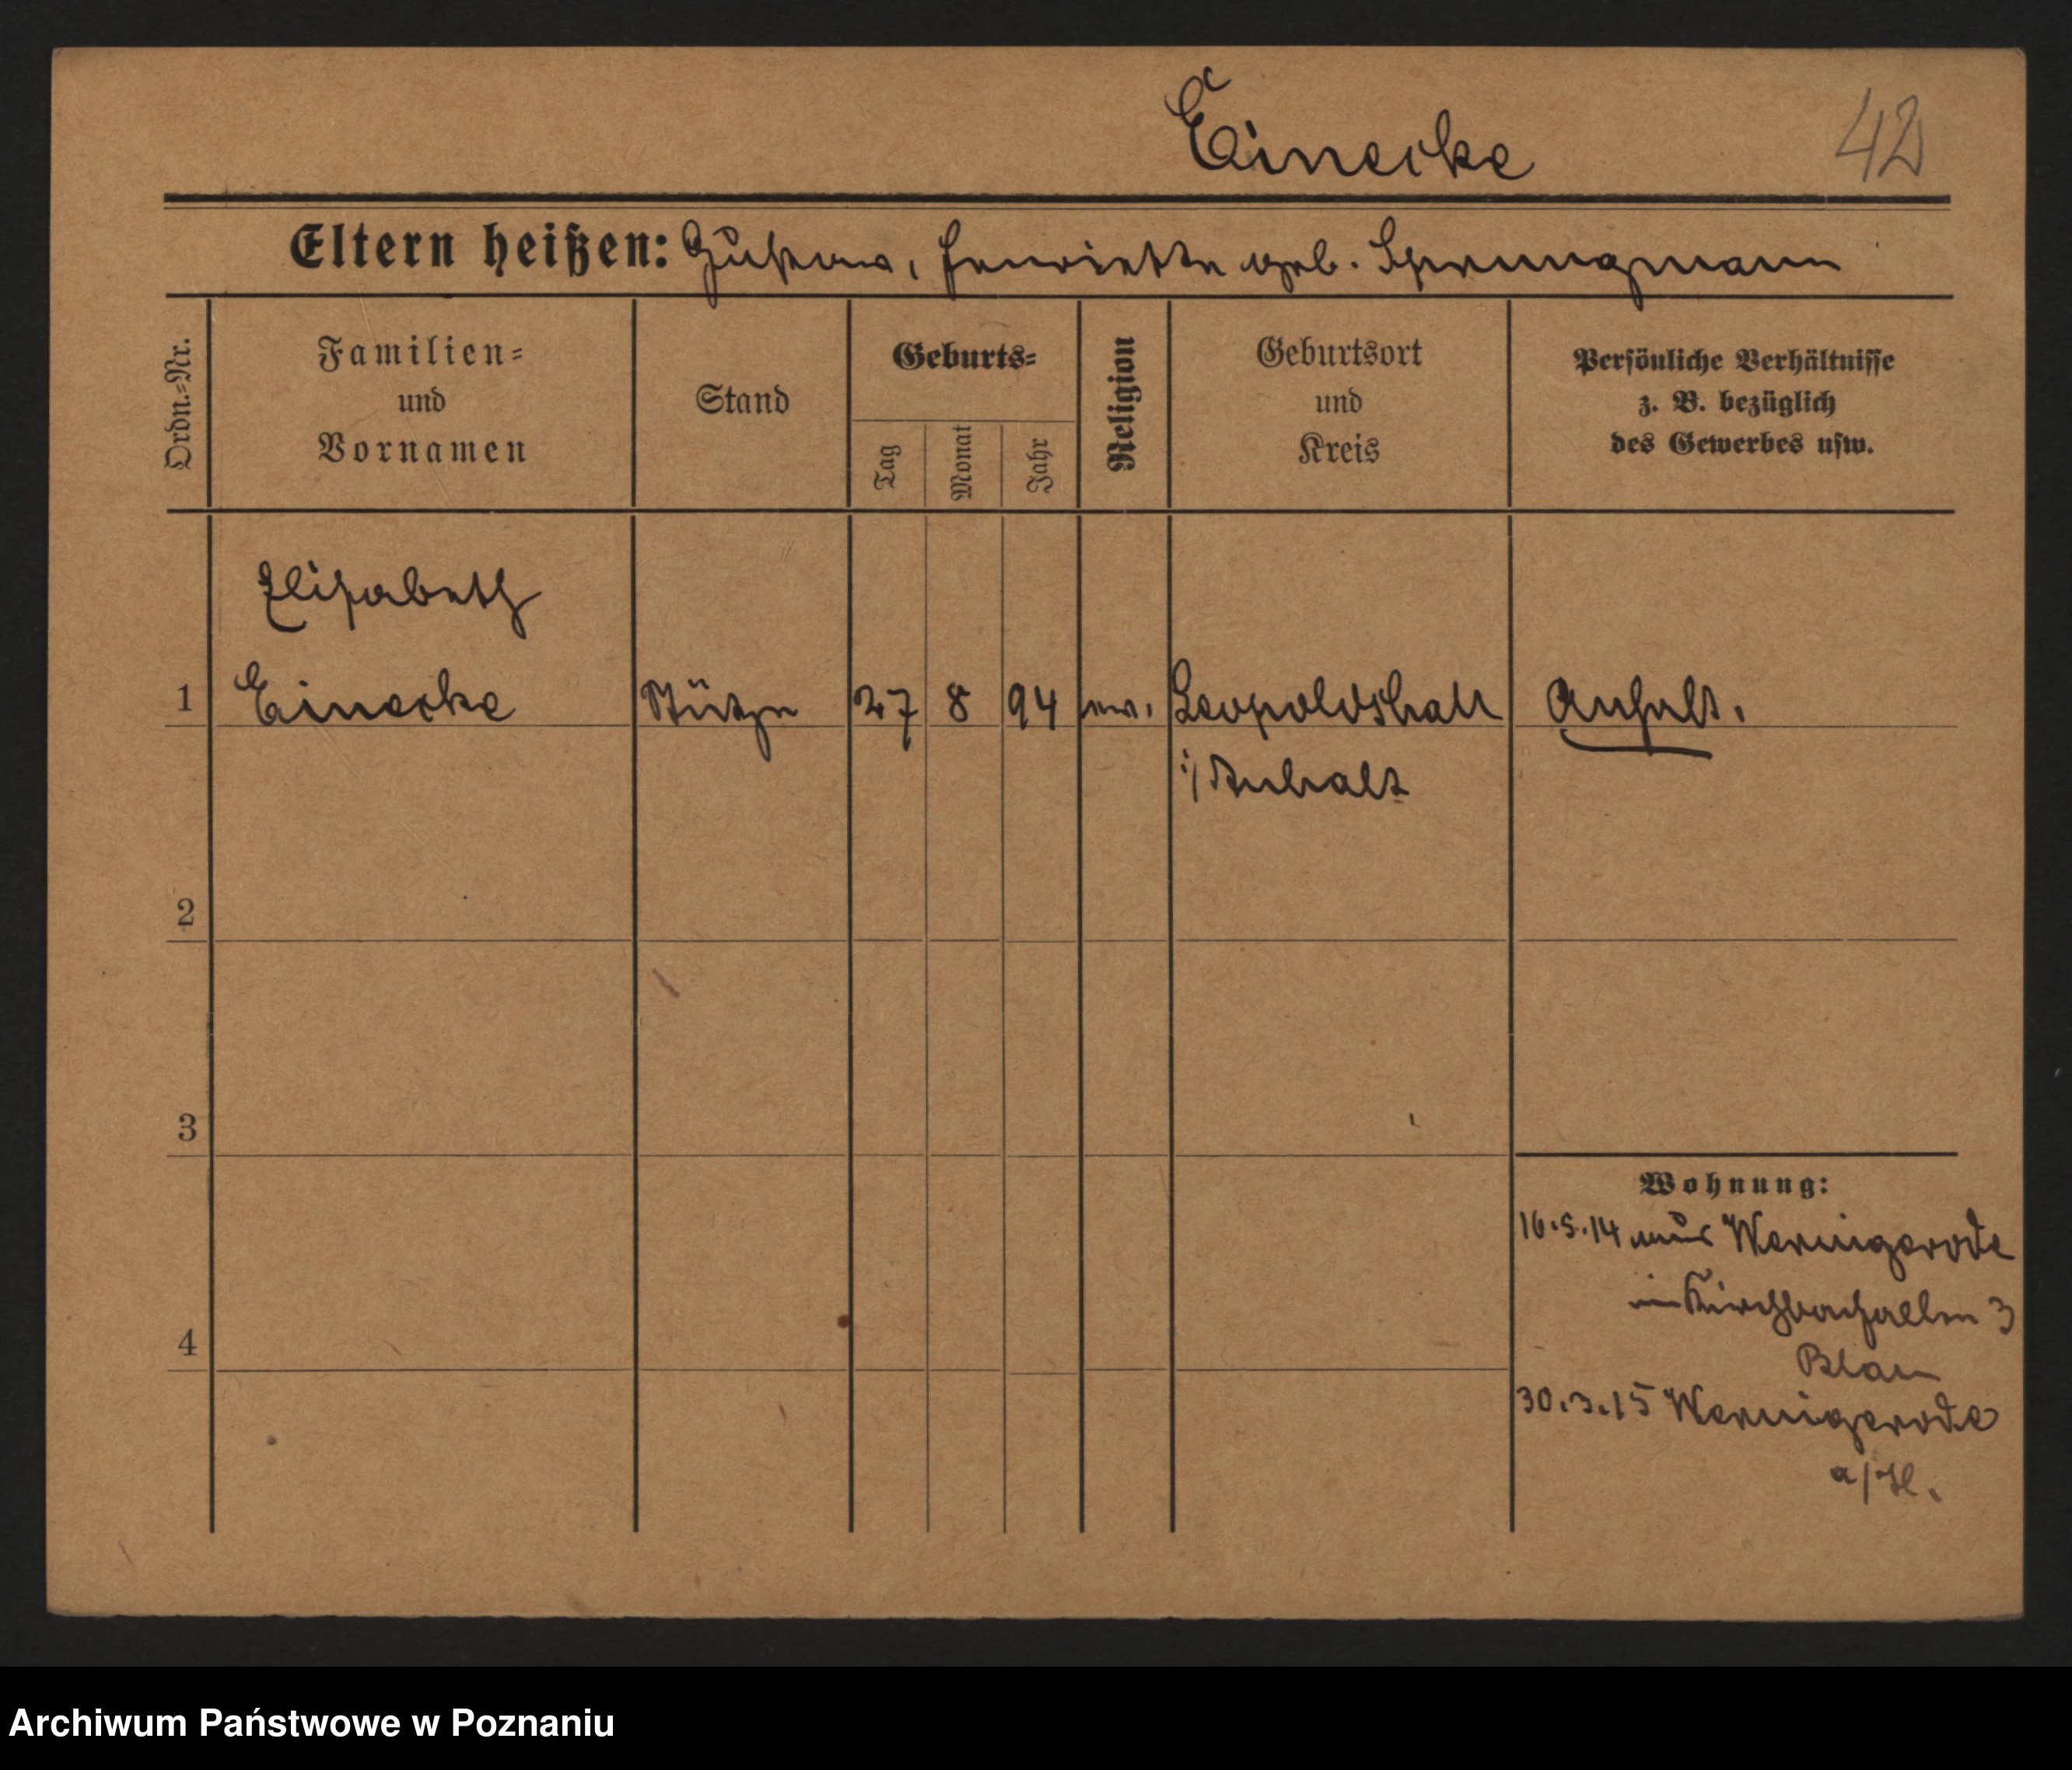 Einecke 42
Eltern heißen: Gustav, Henriette geb. Sprungmann
Ordn.=Nr.
Familien=
und
Vornamen
Stand
Geburts=
Tag Monat Jahr
Religion
Geburtsort
und
Kreis
Persönliche Verhältnisse
z. B. bezüglich
des Gewerbes usw.
Elisabeth
1 Einecke Stütze 27 8 94 ev. Leopoldshall Anhalt.
i/Anhalt
2
3
Wohnung:
16.5.14 aus Wernigerode
in Kirchbachallee 3
4
Blau
30.3.15 Wernigerode
a/H.
Archiwum Państwowe w Poznaniu